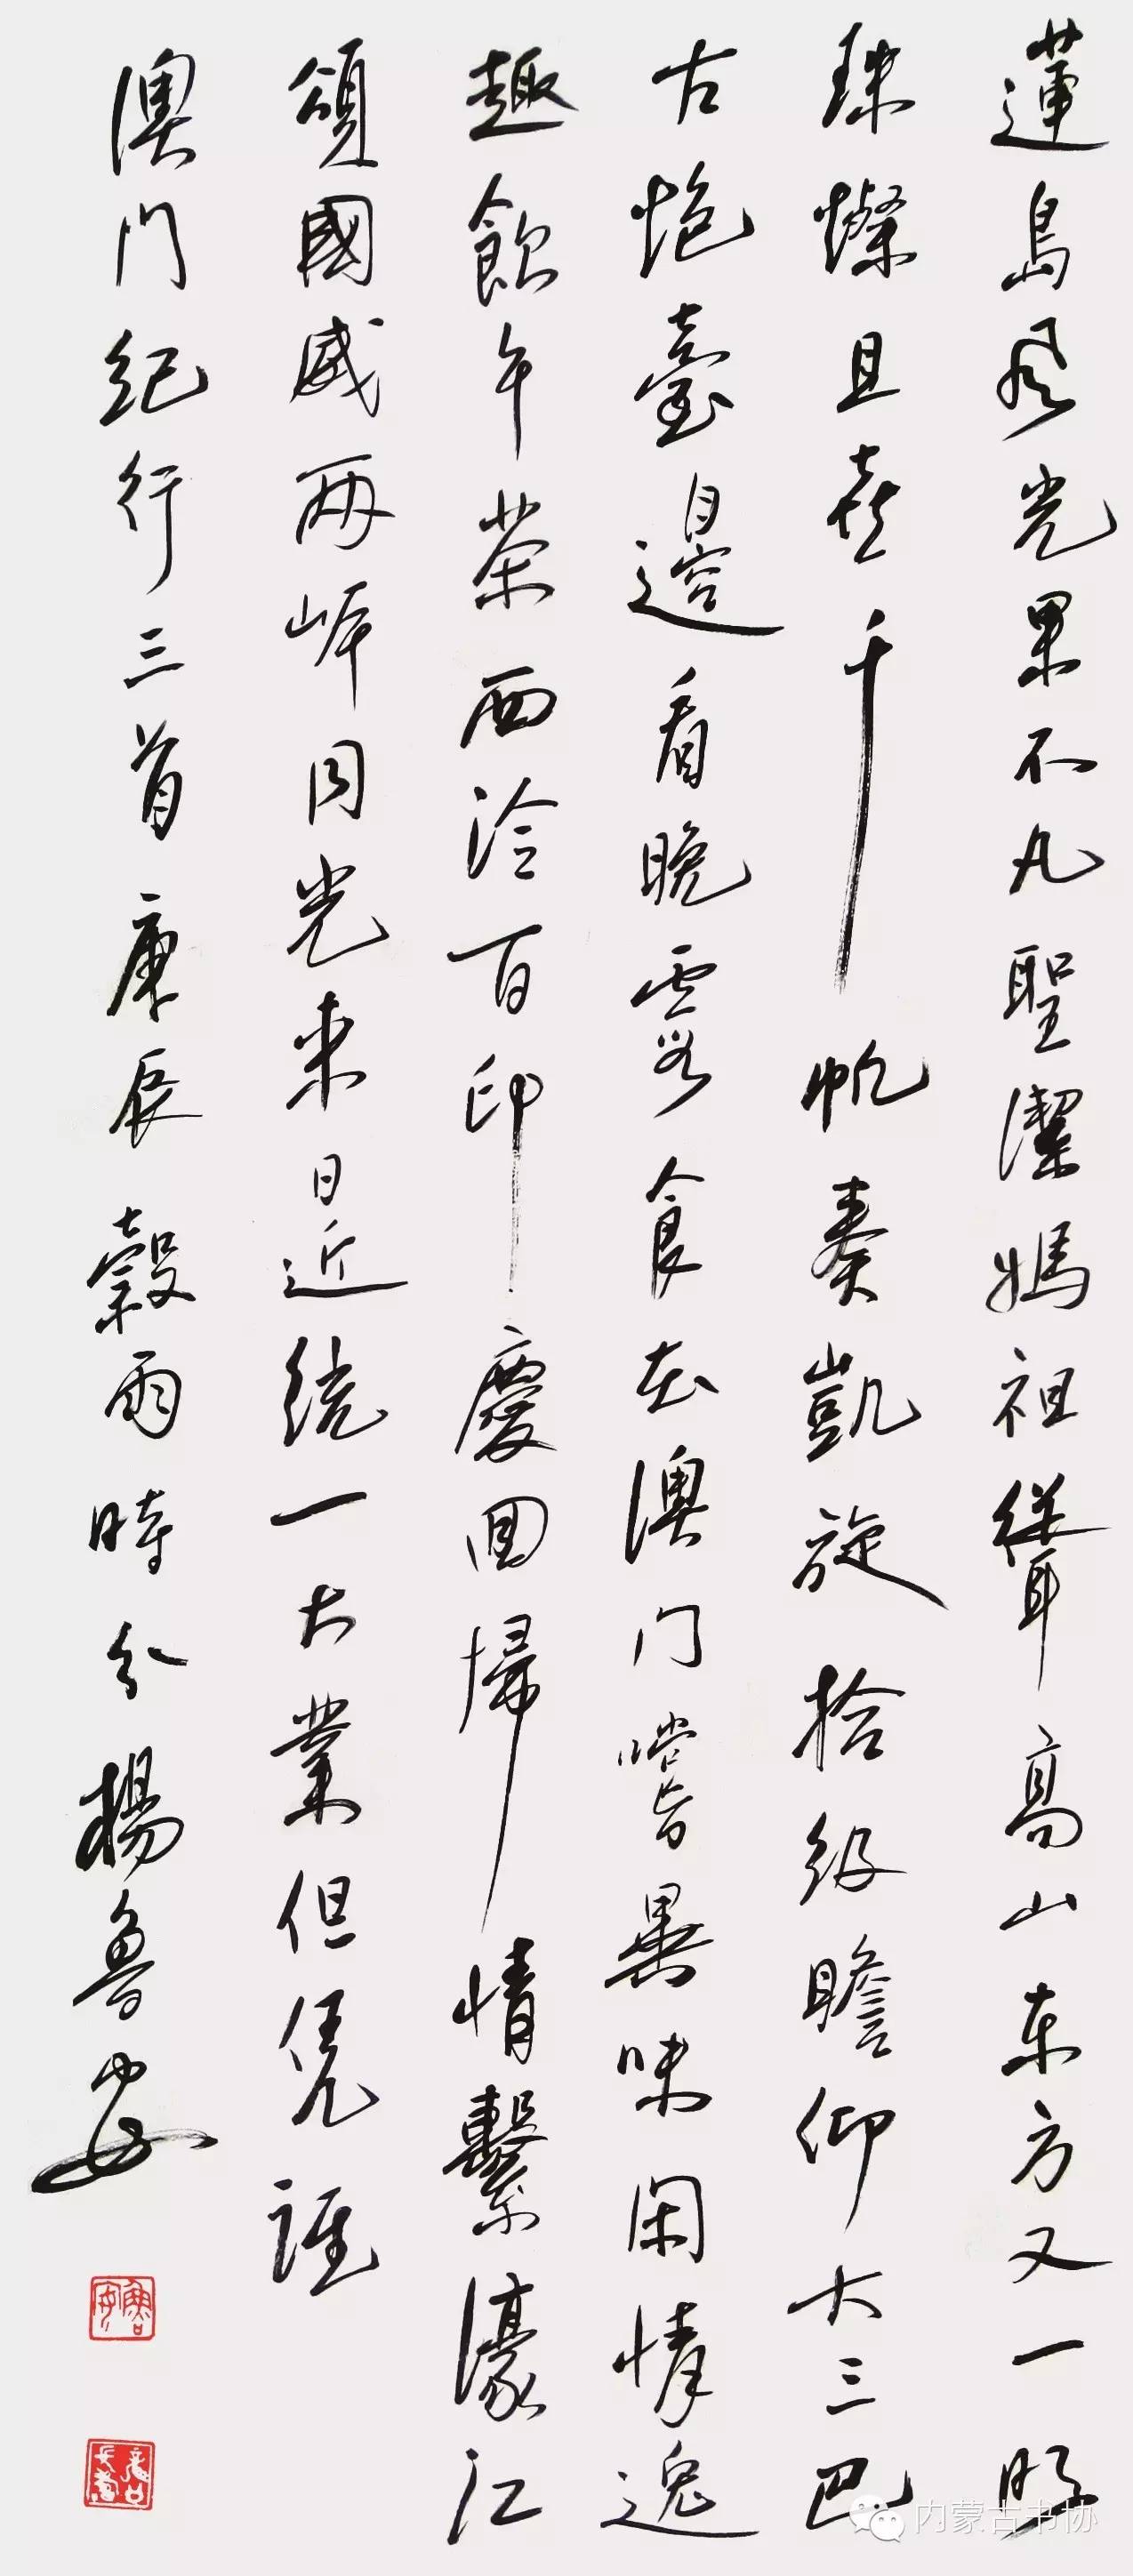 蓮島風光果不凡聖潔媽祖聳高山东方又一明
珠燦且喜千帆奏凱旋拾級瞻仰大三巴
古炮臺邊看晚霞食在澳门嚐異味闲情逸
趣飲午茶西泠百印慶回歸情繫濠江
頌國威兩岸同光来日近统一大業但凭誰
澳门纪行三首 庚辰穀雨時分楊魯安
魯安
内蒙古书协